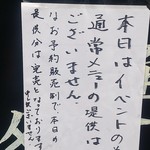 本日はイベントの
通常メニューの提供は
ございません。
なお予約販売制で本日の
提供分は完売となっております